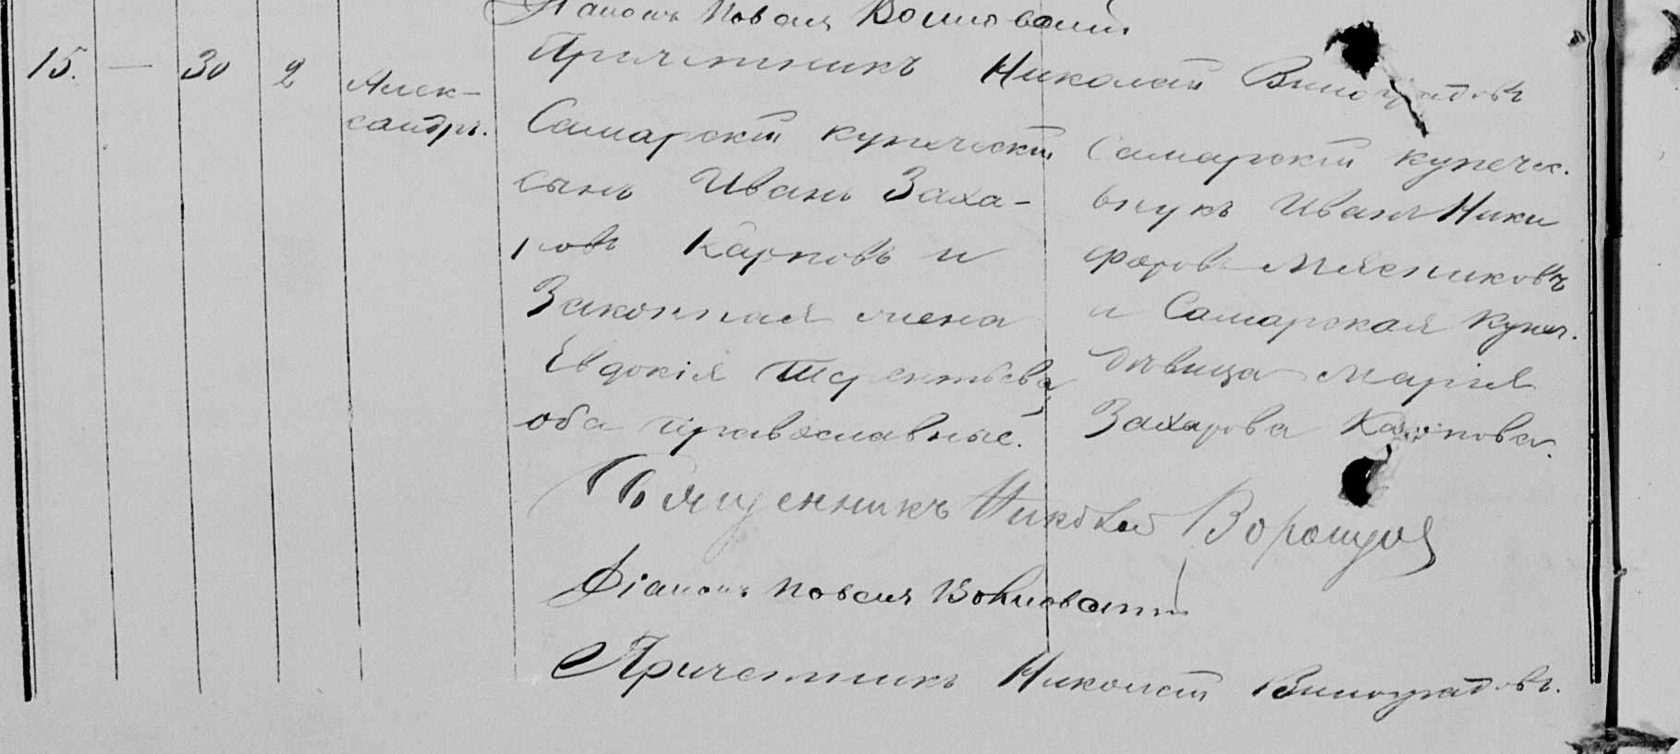 Діаконъ Павелъ
Причетникъ Николай Виноградовъ
15. — 30 2 Алек-
сандръ.
Самарскій купеческій
сынъ Иванъ Заха-
ровъ Карповъ и
Законная жена
Евдокія Терентьева,
оба православные.
Самарскій купеч.
внукъ Иванъ Ники
форовъ Мясниковъ
и Самарская купеч.
дѣвица Марія
Захарова Карпова.
Священникъ Николай
Діаконъ Павелъ
Причетникъ Николай Виноградовъ.